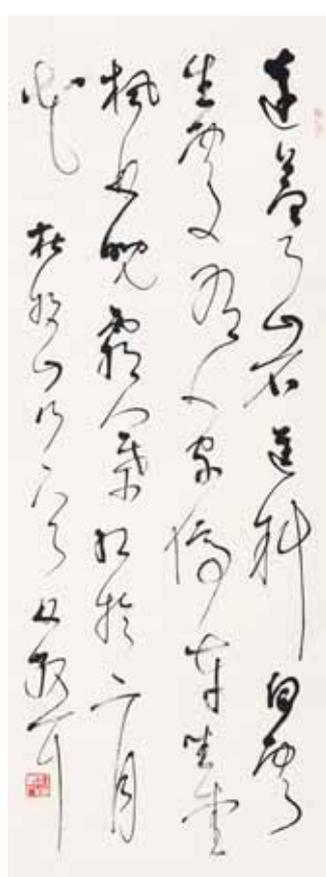 遠上寒山石逕斜白雲
生處有人家停車坐愛
楓林晚霜葉紅於二月
花 杜牧山行